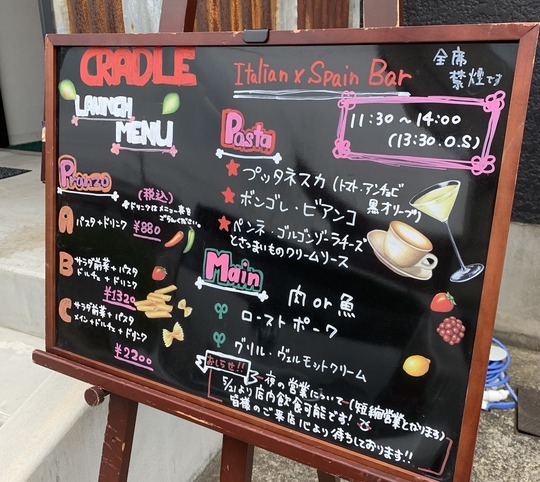 CRADLE
Italian x Spain Bar
全席
禁煙です
LAUNCH
MENU
11:30～14:00
(13:30.O.S)
Pranzo
(税込)
*ドリンクはメニュー表を
ごらんください。
A パスタ+ドリンク
¥880
B サラダ前菜+パスタ
ドルチェ+ドリンク
¥1320
C サラダ前菜+パスタ
メイン+ドルチェ+ドリンク
¥2200
Pasta
★プッタネスカ(トマト・アンチョビ
黒オリーブ)
★ボンゴレ・ビアンコ
★ペンネ・ゴルゴンゾーラチーズ
とさつまいものクリームソース
Main
肉 or 魚
ローストポーク
グリル・ヴェルモットクリーム
おしらせ!!
夜の営業について(短縮営業となります)
5/21より店内飲食可能です!
皆様のご来店心より待ちしております!!